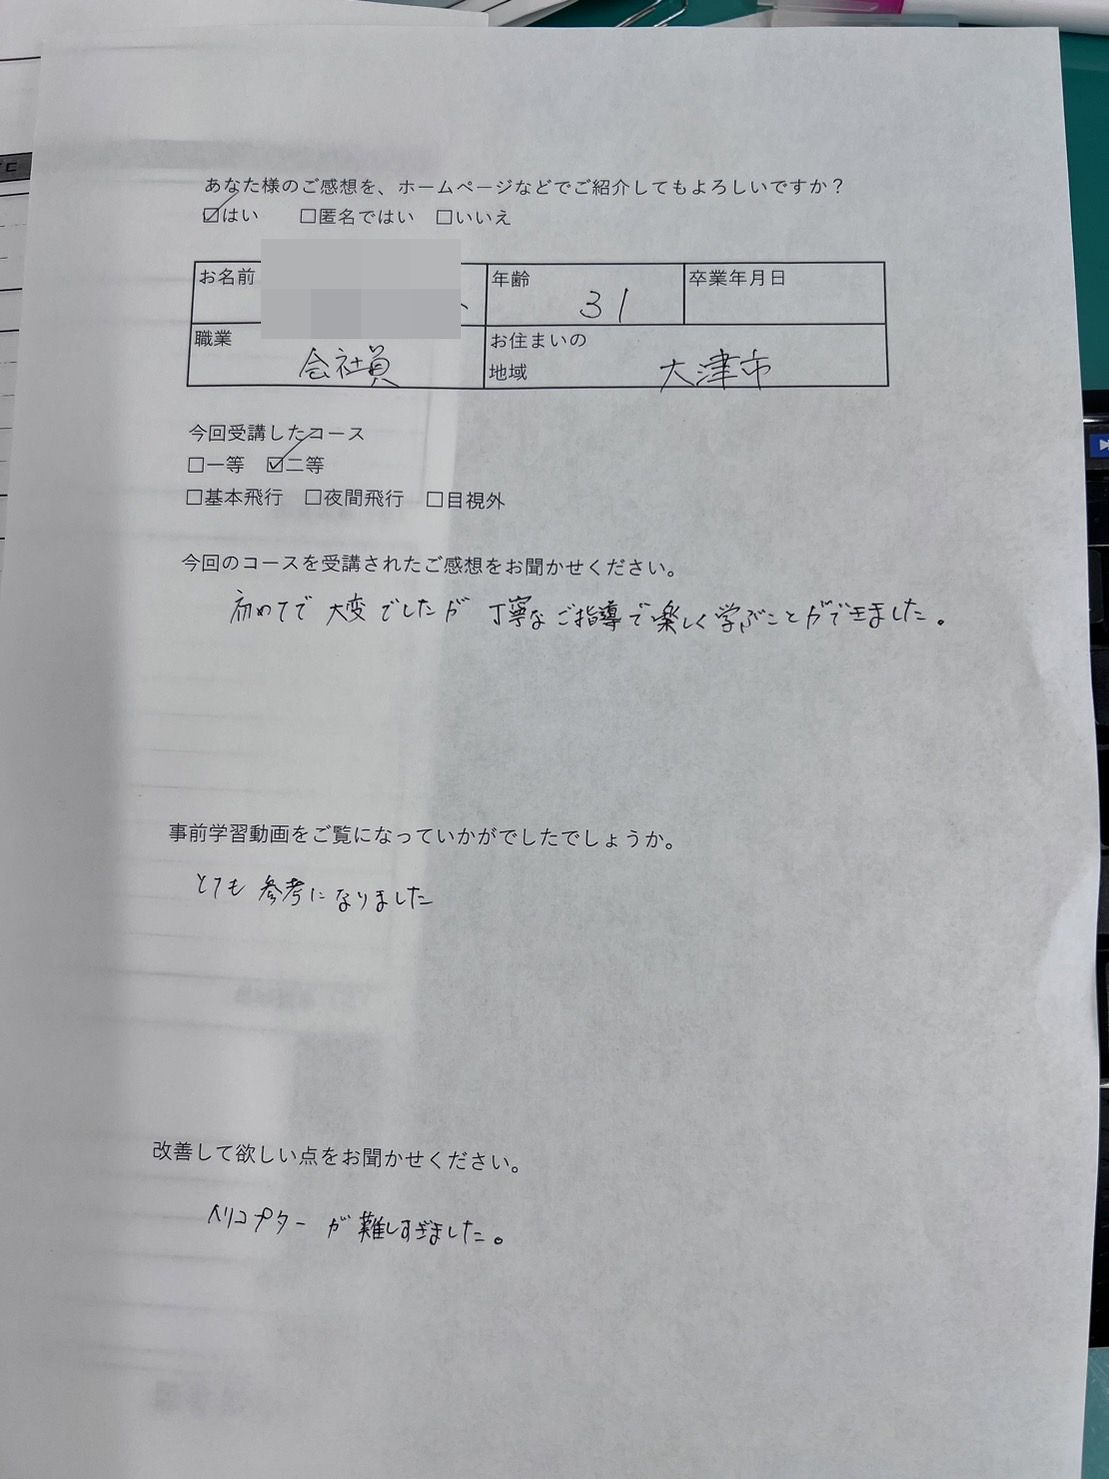 あなた様のご感想を、ホームページなどでご紹介してもよろしいですか？
☑はい　□匿名ではい　□いいえ
お名前
年齢 31
卒業年月日
職業 会社員
お住まいの
地域 大津市
今回受講したコース
□一等　☑二等
□基本飛行　□夜間飛行　□目視外
今回のコースを受講されたご感想をお聞かせください。
初めてで大変でしたが丁寧なご指導で楽しく学ぶことができました。
事前学習動画をご覧になっていかがでしたでしょうか。
とても参考になりました
改善して欲しい点をお聞かせください。
ヘリコプターが難しすぎました。